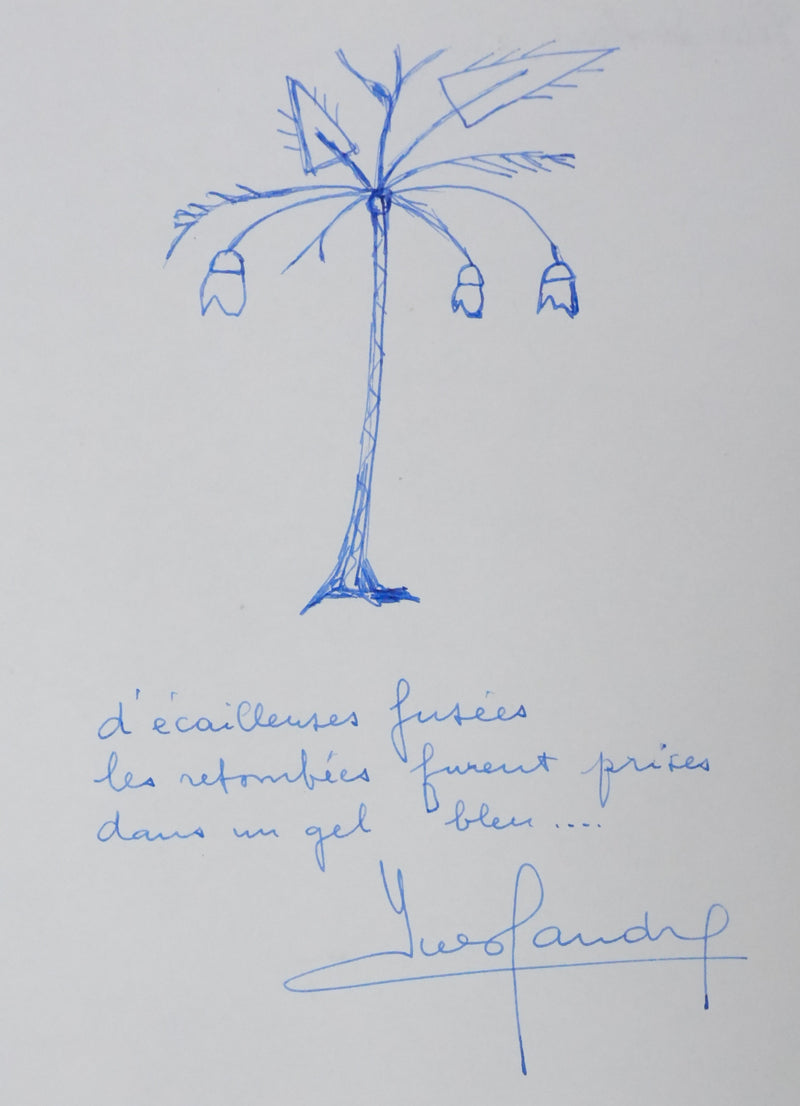 d'écailleuses fusées
les retombées furent prises
dans un gel bleu ....
Yves Landry